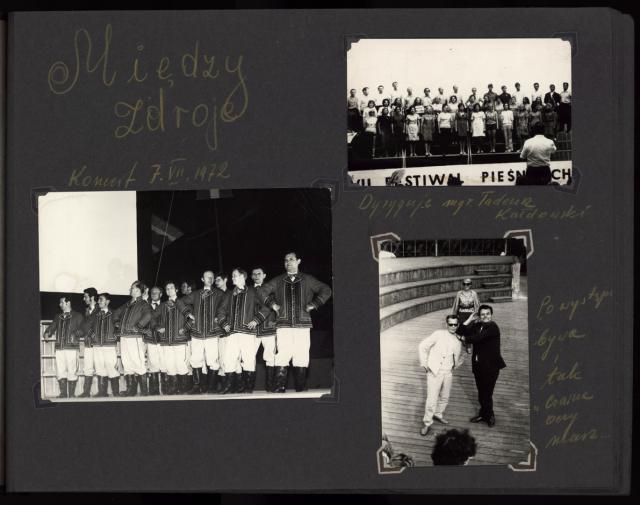 Między
Zdroje
Koncert 7.VII.1972
VII FESTIWAL PIEŚNI CH
Dyryguje mgr. Tadeusz
Kaldowski
Po występi
bywa
i tak
"Czarne
oczy
masz...